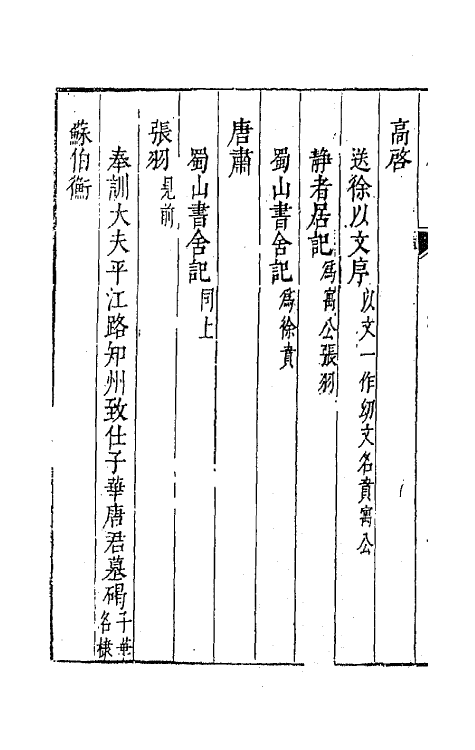 高啓
送徐以文序以文一作幼文名賁寓公
静者居記爲寓公張羽
蜀山書舍記爲徐賁
唐肅
蜀山書舍記同上
張羽見前
奉訓大夫平江路知州致仕子華唐君墓碣子華名棣
蘇伯衡